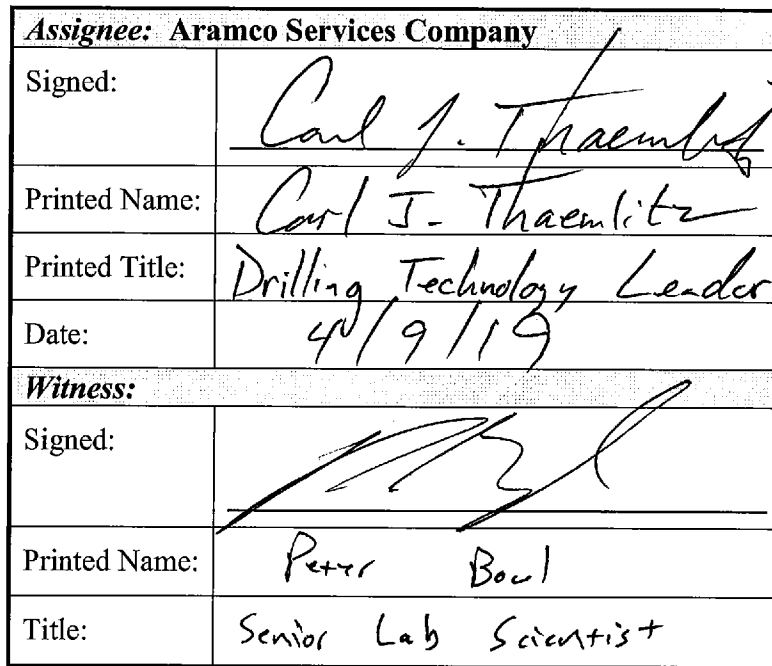 Assignee: Aramco Services Company
Signed: Carl J. Thaemlitz
Printed Name: Carl J. Thaemlitz
Printed Title: Drilling Technology Leader
Date: 4/9/19
Witness:
Signed:
Printed Name: Peter Boul
Title: Senior Lab Scientist